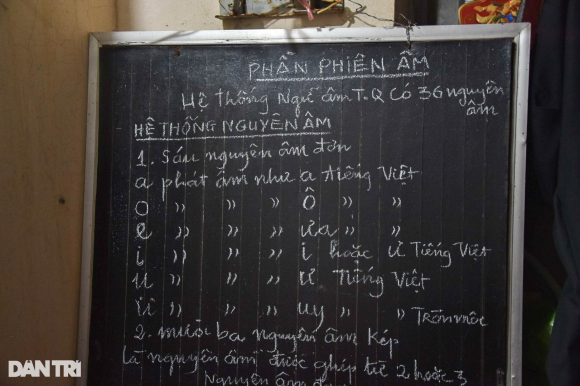 PHẦN PHIÊN ÂM
Hệ thống Ngữ âm T.Q có 36 nguyên
âm
HỆ THỐNG NGUYÊN ÂM
1. Sáu nguyên âm đơn
a phát âm như a tiếng Việt
o " " " Ô " "
e " " " ưa " "
i " " " i hoặc ư Tiếng Việt
u " " " Ư Tiếng Việt
ü " " " uy " " Tròn môi
2. mười ba nguyên âm kép
là nguyên âm được ghép từ 2 hoặc 3
Nguyên âm
DÂN TRÍ